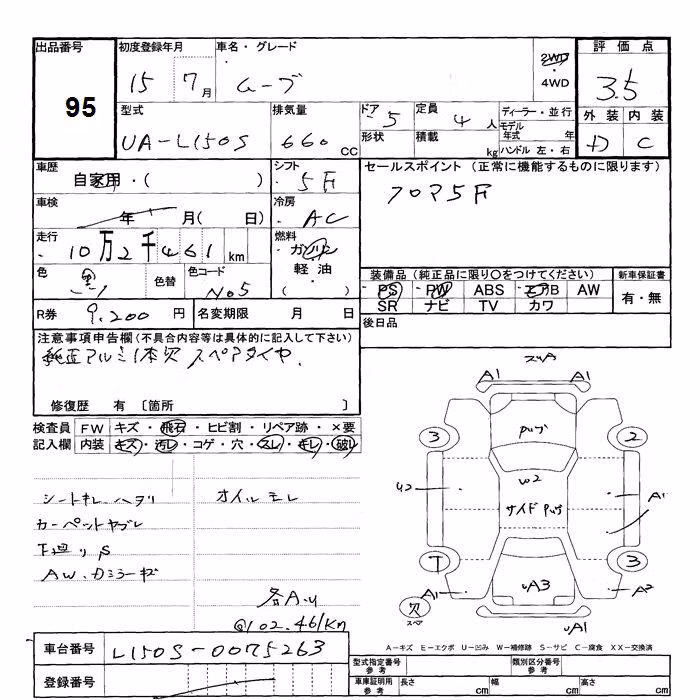 出品番号
95
初度登録年月
15 7月
車名・グレード
ムーブ
2WD
・4WD
評価点
3.5
外装 内装
C
型式
UA-L150S
排気量
660 cc
ドア
・5
形状
定員
4 人
積載
kg
ディーラー・並行
モデル年式 年
ハンドル 左・右
車歴
自家用・( )
シフト
・5F
セールスポイント (正常に機能するものに限ります)
フロア5F
車検
年 月( 日)
冷房
・AC
走行
・10万2千461km
燃料
・ガソリン
軽油
色
黒
色替
色コード
No5
装備品 (純正品に限り○をつけてください)
PS PW ABS エアB AW
SR ナビ TV カワ
新車保証書
有・無
R券 9,200円
名変期限 月 日
後日品
注意事項申告欄(不具合内容等は具体的に記入して下さい)
純正アルミ1本欠 スペアタイヤ.
修復歴 有 〔箇所 〕
検査員記入欄
FW キズ・飛石・ヒビ割・リペア跡・×要
内装 キズ・汚レ・コゲ・穴・スレ・キレ・破レ
シートキレ ハゲリ オイルモレ
カーペットヤブレ
下廻りS
AW.カラミーキズ
各A.U
@102.461Km
A1 A1
3 2
Pug
U2 W2 A1
サイドPug
T 3
A1 UA3 A2
欠
スペア
UA1
A-キズ E-エクボ U-凹み W-補修跡 S-サビ C-腐食 XX-交換済
車台番号
L150S-0075263
登録番号
型式指定番号 参考
類別区分番号 参考
車庫証明用 参考
長さ cm 幅 cm 高さ cm